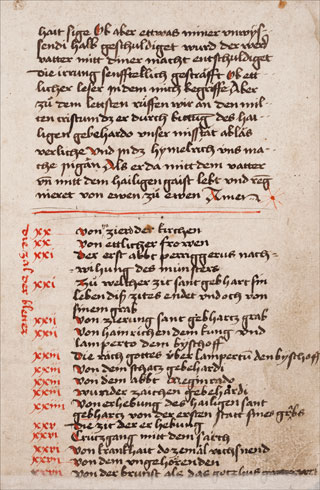 hait sige Ob aber ettwas miner unwys
sendi halb geschuldiget wurd der werd
vatter mitt diner macht entschuldiget
die irrung senffteklich gestrafft Ob ett
licher leser in dem mich begriffe Aber
zů dem lettsten rüffen wir an den mil
ten cristum dz er durch bittug des hai
ligen gebehardo vnser misstät abläs
verliche vnd in dz hymelrich vns ma
che ingän Als er da mitt dem vatter
vn mitt dem hailigen gaist lebt vnd reg
nieret von ewen zů ewen Amen
die zal der
xx von zierd der kirchen
xx von ettlicher frowen
xxi Der erst abbt perriggerus nach
wihung des münsters
xxi Zů welcher zit sant gebhart sin
leben diss zites endet vnd och von
sinem grab
xxii von zierung sant gebhartz grab
xxii von hainrichen dem kung vnd
lamperto dem byschoff
xxiii Die räch gottes über lampertū den byschoff
xxiii von dem schatz gebehardi
xxiiii von dem abbt
xxiiii wunder zaichen gebehardi
xxiiii von erhebung des hailigen sant
gebhartz von der ersten statt sines grabs
xxv Die zit der erhebung
xxvi Crützgang mitt dem sarch
xxvi von krankhait do zemäl
xxvii von dem ungehörenden
von der brunst als das gotzhus